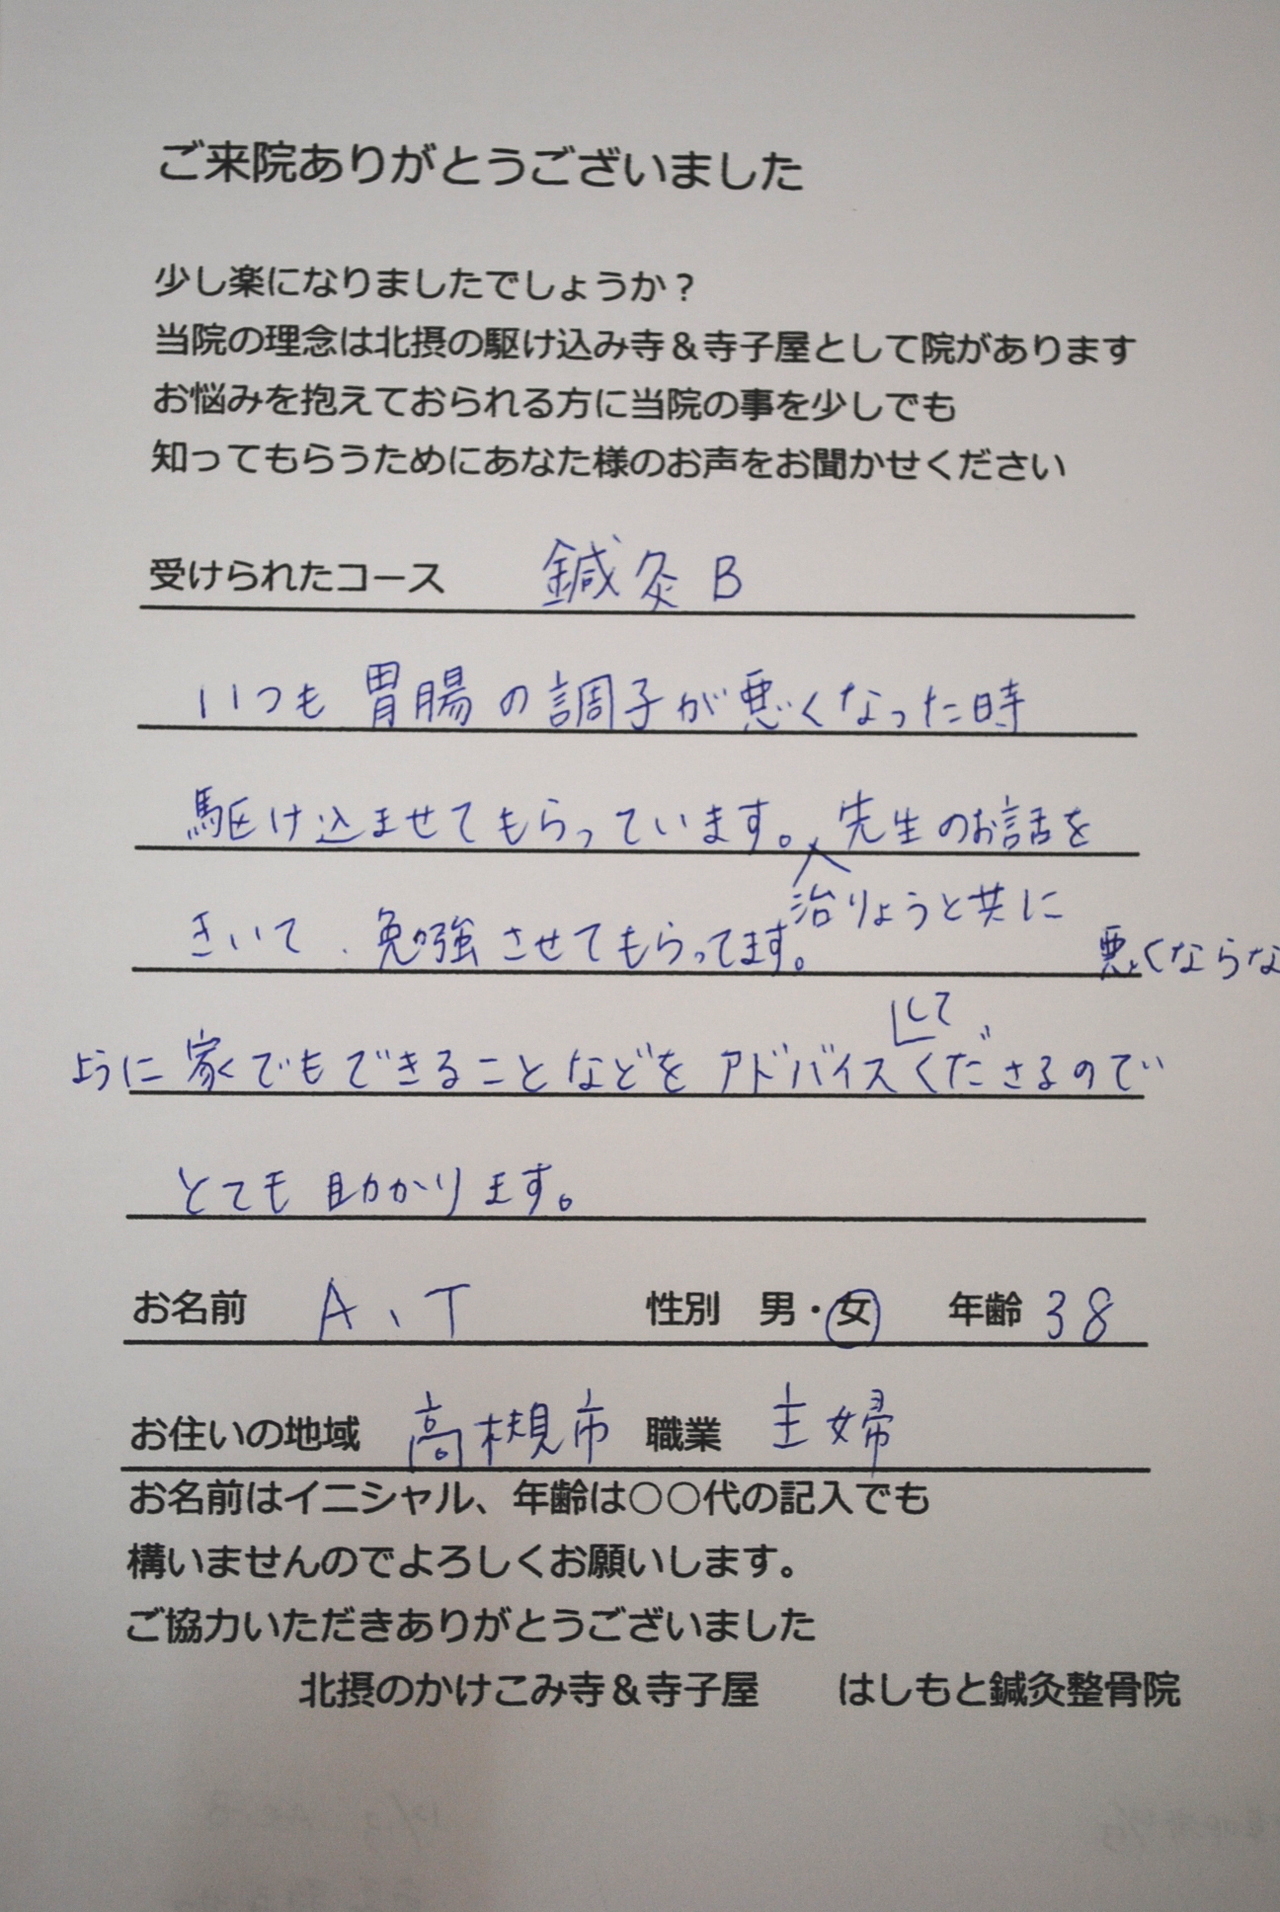 ご来院ありがとうございました
少し楽になりましたでしょうか？
当院の理念は北摂の駆け込み寺＆寺子屋として院があります
お悩みを抱えておられる方に当院の事を少しでも
知ってもらうためにあなた様のお声をお聞かせください
受けられたコース 鍼灸B
いつも胃腸の調子が悪くなった時
駆け込ませてもらっています。先生のお話を
治りょうと共に
きいて、勉強させてもらってます。
悪くならな
ように家でもできることなどをアドバイスくださるので
して
とても助かります。
お名前 A、T 性別 男・女 年齢 38
お住いの地域 高槻市 職業 主婦
お名前はイニシャル、年齢は○○代の記入でも
構いませんのでよろしくお願いします。
ご協力いただきありがとうございました
北摂のかけこみ寺＆寺子屋 はしもと鍼灸整骨院